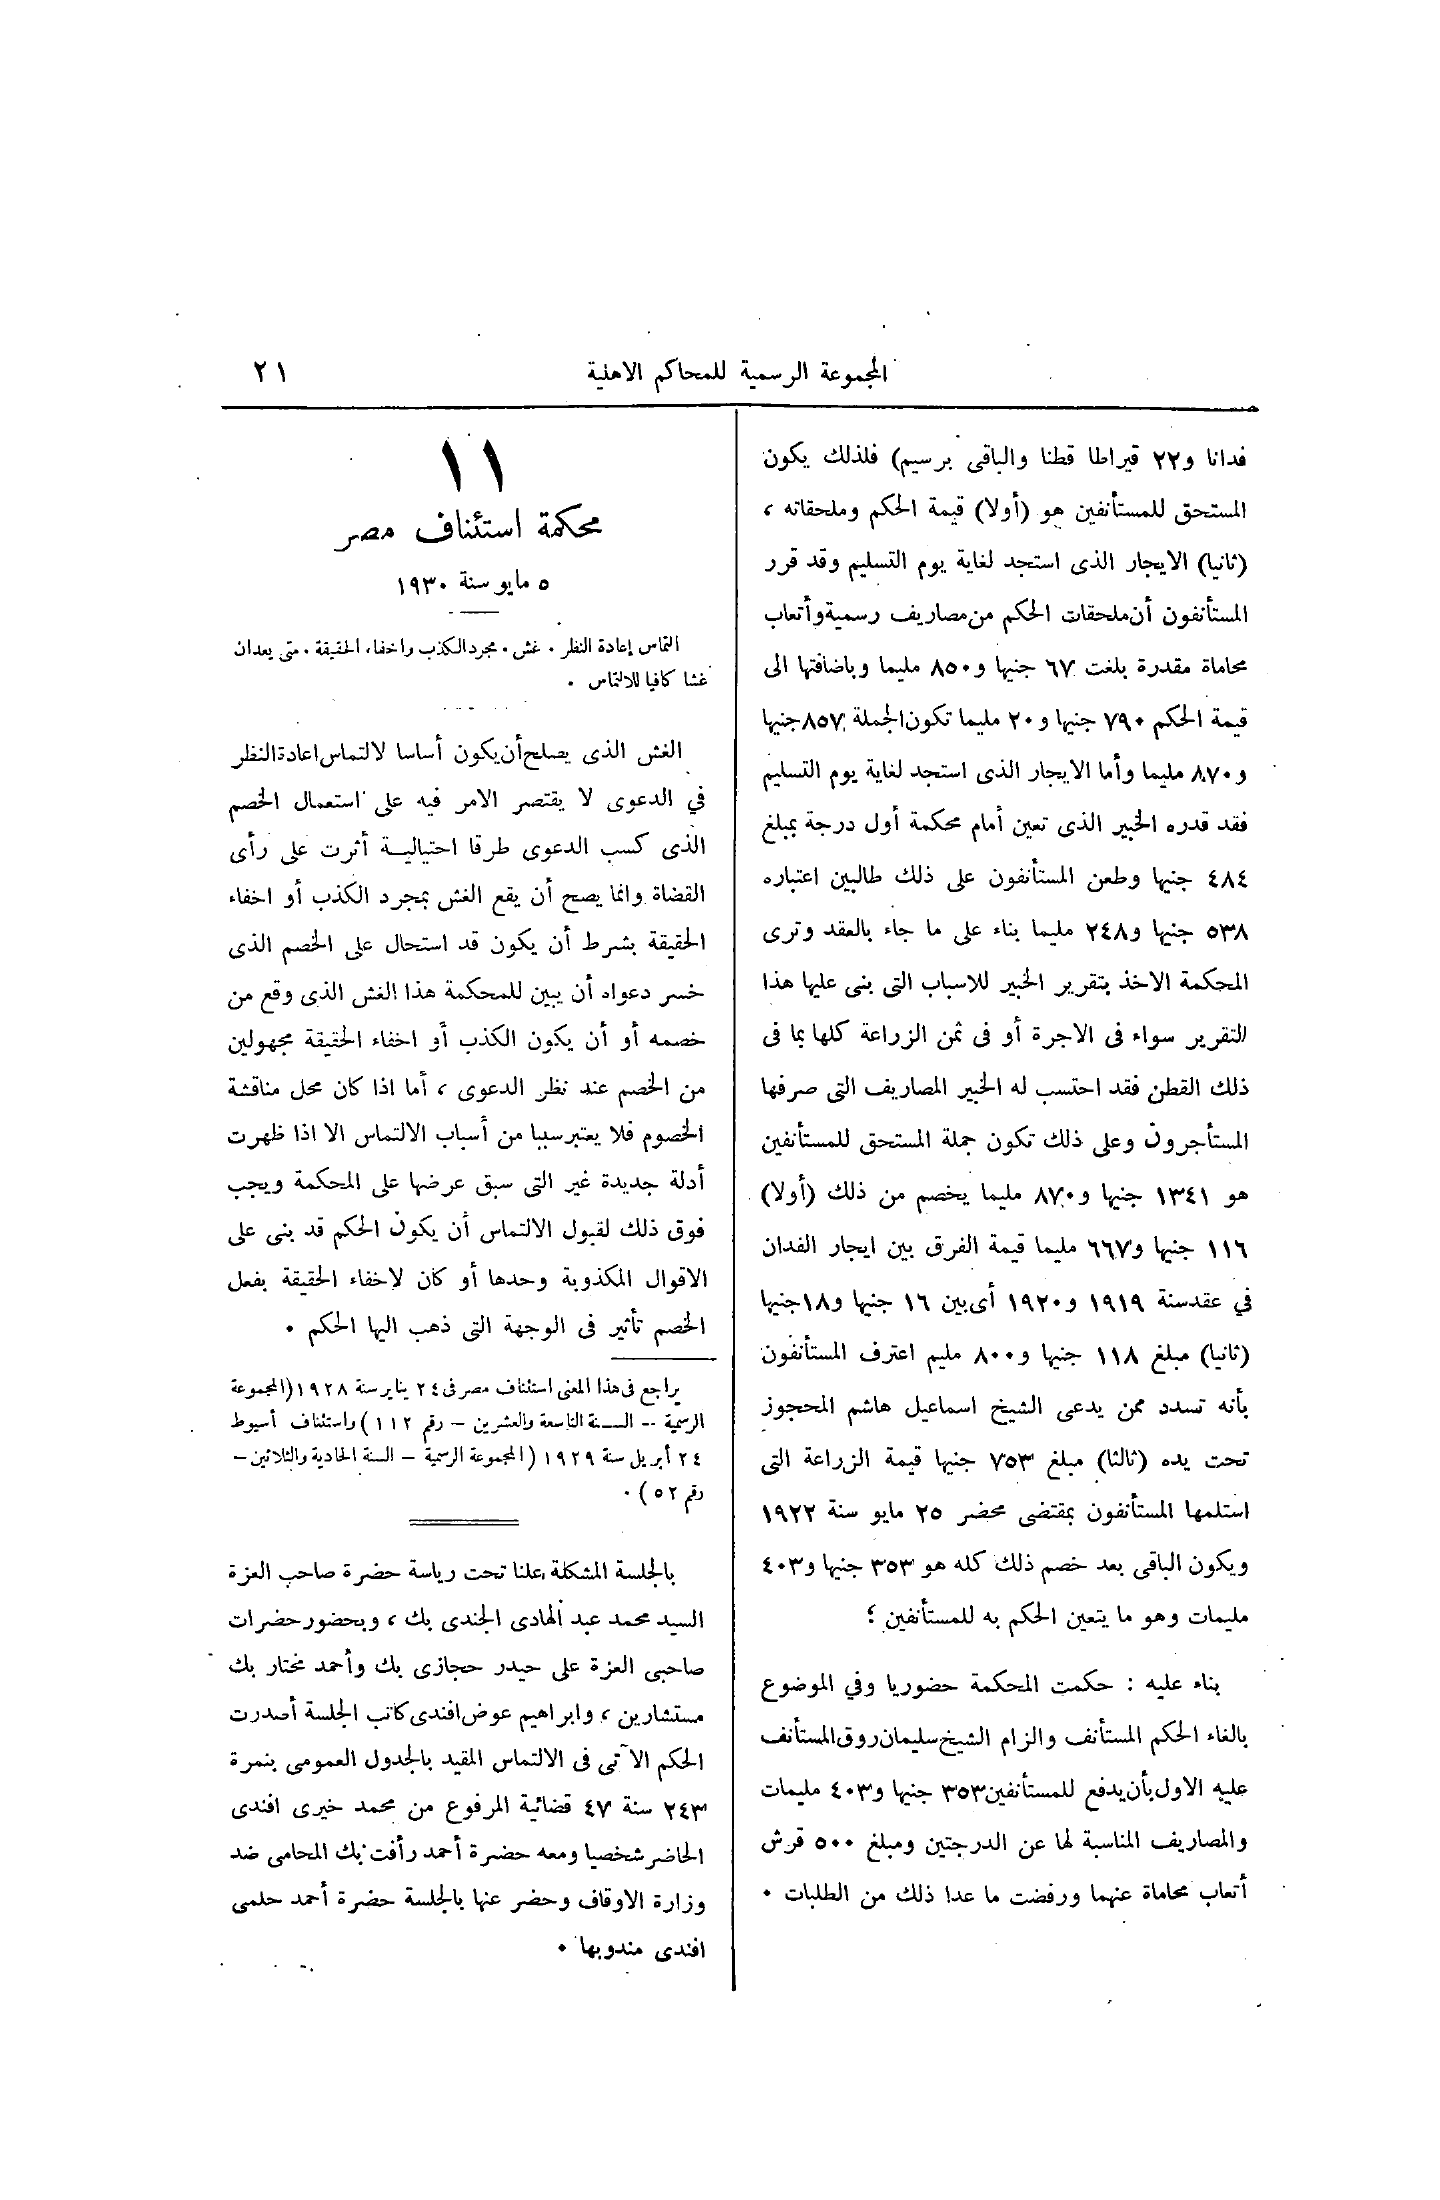 المجموعة الرسمية للمحاكم الاهلية
٢١
فدانا و٢٢ قيراطا قطنا والباقى برسيم) فلذلك يكون
المستحق للمستأنفين هو (أولا) قيمة الحكم وملحقاته ،
(ثانيا) الايجار الذى استجد لغاية يوم التسليم وقد قرر
المستأنفون أن ملحقات الحكم من مصاريف رسمية وأتعاب
محاماة مقدرة بلغت ٦٧ جنيها و٨٥٠ مليما وباضافتها الى
قيمة الحكم ٧٩٠ جنيها و٢٠ مليما تكون الجملة ٨٥٧ جنيها
و٨٧٠ مليما وأما الايجار الذى استجد لغاية يوم التسليم
فقد قدره الخبير الذى تعين أمام محكمة أول درجة بمبلغ
٤٨٤ جنيها وطعن المستأنفون على ذلك طالبين اعتباره
٥٣٨ جنيها و٢٤٨ مليما بناء على ما جاء بالعقد وترى
المحكمة الاخذ بتقرير الخبير للاسباب التى بنى عليها هذا
التقرير سواء فى الاجرة أو فى ثمن الزراعة كلها بما فى
ذلك القطن فقد احتسب له الخبير المصاريف التى صرفها
المستأجرون وعلى ذلك تكون جملة المستحق للمستأنفين
هو ١٣٤١ جنيها و٨٧٠ مليما يخصم من ذلك (أولا)
١١٦ جنيها و٦٦٧ مليما قيمة الفرق بين ايجار الفدان
في عقد سنة ١٩١٩ و١٩٢٠ أى بين ١٦ جنيها و١٨ جنيها
(ثانيا) مبلغ ١١٨ جنيها و٨٠٠ مليم اعترف المستأنفون
بأنه تسدد ممن يدعى الشيخ اسماعيل هاشم المحجوز
تحت يده (ثالثا) مبلغ ٧٥٣ جنيها قيمة الزراعة التى
استلمها المستأنفون بمقتضى محضر ٢٥ مايو سنة ١٩٢٢
ويكون الباقى بعد خصم ذلك كله هو ٣٥٣ جنيها و٤٠٣
مليمات وهو ما يتعين الحكم به للمستأنفين ؛
بناء عليه : حكمت المحكمة حضوريا وفي الموضوع
بالغاء الحكم المستأنف والزام الشيخ سليمان روق المستأنف
عليه الاول بأن يدفع للمستأنفين ٣٥٣ جنيها و٤٠٣ مليمات
والمصاريف المناسبة لها عن الدرجتين ومبلغ ٥٠٠ قرش
أتعاب محاماة عنهما ورفضت ما عدا ذلك من الطلبات ٠
١١
محكمة استئناف مصر
٥ مايو سنة ١٩٣٠
التماس إعادة النظر ٠ غش ٠ مجرد الكذب واخفاء الحقيقة ٠ متى يعدان
غشا كافيا للالتماس ٠
الغش الذى يصلح أن يكون أساسا لالتماس اعادة النظر
في الدعوى لا يقتصر الامر فيه على استعمال الخصم
الذى كسب الدعوى طرقا احتيالية أثرت على رأى
القضاة وانما يصح أن يقع الغش بمجرد الكذب أو اخفاء
الحقيقة بشرط أن يكون قد استحال على الخصم الذى
خسر دعواه أن يبين للمحكمة هذا الغش الذى وقع من
خصمه أو أن يكون الكذب أو اخفاء الحقيقة مجهولين
من الخصم عند نظر الدعوى ، أما اذا كان محل مناقشة
الخصوم فلا يعتبر سببا من أسباب الالتماس الا اذا ظهرت
أدلة جديدة غير التى سبق عرضها على المحكمة ويجب
فوق ذلك لقبول الالتماس أن يكون الحكم قد بنى على
الاقوال المكذوبة وحدها أو كان لاخفاء الحقيقة بفعل
الخصم تأثير فى الوجهة التى ذهب اليها الحكم ٠
يراجع فى هذا المعنى استئناف مصر فى ٢٤ يناير سنة ١٩٢٨ (المجموعة
الرسمية -- السنة التاسعة والعشرين – رقم ١١٢) واستئناف أسيوط
٢٤ أبريل سنة ١٩٢٩ (المجموعة الرسمية – السنة الحادية والثلاثين –
رقم ٥٢) ٠
بالجلسة المشكلة علنا تحت رياسة حضرة صاحب العزة
السيد محمد عبد الهادى الجندى بك ، وبحضور حضرات
صاحبى العزة على حيدر حجازى بك وأحمد مختار بك
مستشارين ، وابراهيم عوض افندى كاتب الجلسة أصدرت
الحكم الآتى فى الالتماس المقيد بالجدول العمومى بنمرة
٢٤٣ سنة ٤٧ قضائية المرفوع من محمد خيرى افندى
الحاضر شخصيا ومعه حضرة أحمد رأفت بك المحامى ضد
وزارة الاوقاف وحضر عنها بالجلسة حضرة أحمد حلمى
افندى مندوبها ٠